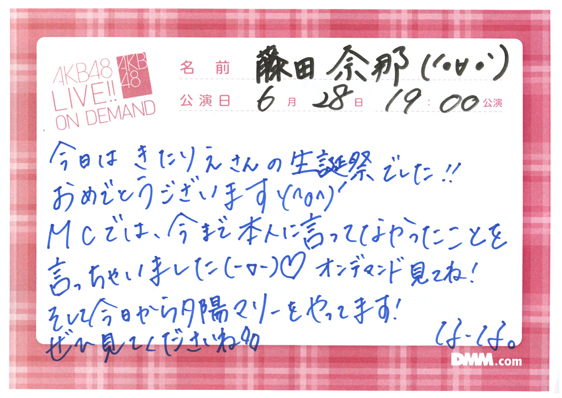 AKB48
LIVE!!
ON DEMAND
AKB
48
名前 藤田奈那(('•∀•')
公演日 6月28日 19:00公演
今日はきたりえさんの生誕祭でした!!
おめでとうございます\(^o^)/
MCでは、今まで本人に言ってなかったことを
言っちゃいました(-▽-)♡ オンデマンド見てね!
そして今日から夕陽マリーをやってます!
ぜひ見てくださいね
なーな。
DMM.com